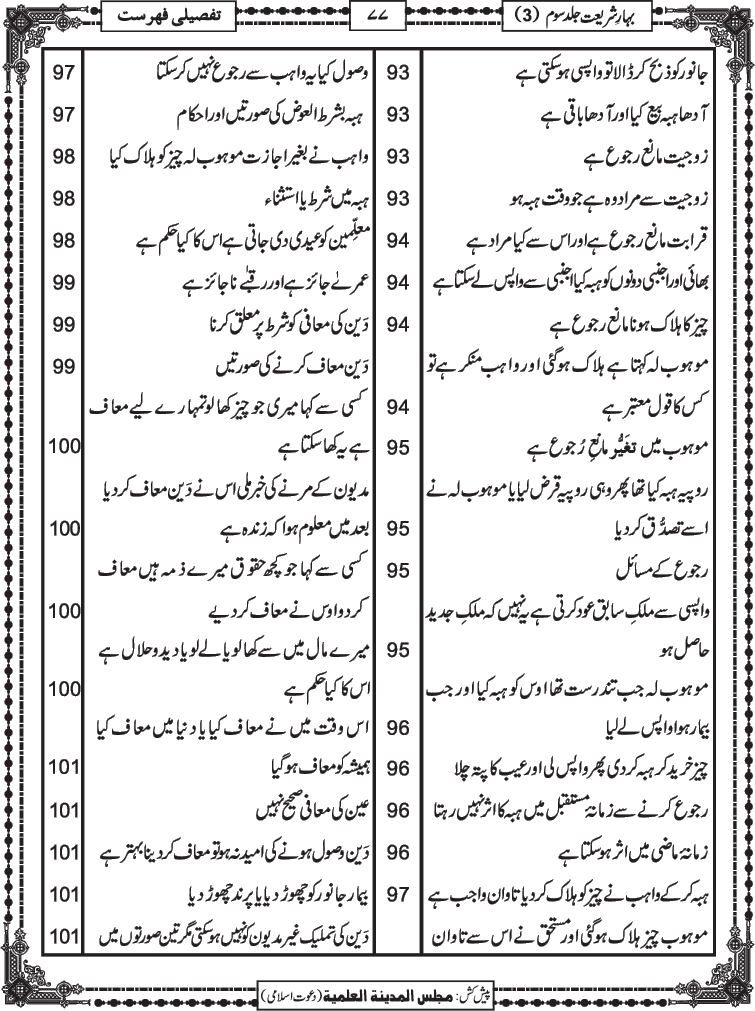 بہارِشریعت جلد سوم (3)
۷۷
تفصیلی فہرست
جانور کو ذبح کر ڈالا تو واپسی ہوسکتی ہے 93
آدھا ہبہ بیع کیا اور آدھا باقی ہے 93
زوجیت مانع رجوع ہے 93
زوجیت سے مراد وہ ہے جو وقت ہبہ ہو 93
قرابت مانع رجوع ہے اور اس سے کیا مراد ہے 94
بھائی اور اجنبی دونوں کو ہبہ کیا اجنبی سے واپس لے سکتا ہے 94
چیز کا ہلاک ہونا مانع رجوع ہے 94
موہوب لہ کہتا ہے ہلاک ہوگئی اور واہب منکر ہے تو
کس کا قول معتبر ہے 94
موہوب میں تغیُّر مانعِ رُجوع ہے 95
روپیہ ہبہ کیا تھا پھر وہی روپیہ قرض لیا یا موہوب لہ نے
اسے تصدُّق کردیا 95
رجوع کے مسائل 95
واپسی سے ملکِ سابق عود کرتی ہے یہ نہیں کہ ملکِ جدید
حاصل ہو 95
موہوب لہ جب تندرست تھا اوس کو ہبہ کیا اور جب
بیمار ہوا واپس لے لیا 96
چیز خرید کر ہبہ کردی پھر واپس لی اور عیب کا پتہ چلا 96
رجوع کرنے سے زمانۂ مستقبل میں ہبہ کا اثر نہیں رہتا 96
زمانۂ ماضی میں اثر ہوسکتا ہے 96
ہبہ کرکے واہب نے چیز کو ہلاک کردیا تاوان واجب ہے 97
موہوب چیز ہلاک ہوگئی اور مستحق نے اس سے تاوان
وصول کیا یہ واہب سے رجوع نہیں کرسکتا 97
ہبہ بشرط العوض کی صورتیں اور احکام 97
واہب نے بغیر اجازت موہوب لہ چیز کو ہلاک کیا 98
ہبہ میں شرط یا استثناء 98
معلّمین کو عیدی دی جاتی ہے اس کا کیا حکم ہے 98
عمرےٰ جائز ہے اور رقبےٰ ناجائز ہے 99
دَین کی معافی کو شرط پر معلق کرنا 99
دَین معاف کرنے کی صورتیں 99
کسی سے کہا میری جو چیز کھا لو تمہارے لیے معاف
ہے یہ کھا سکتا ہے 100
مدیون کے مرنے کی خبر ملی اس نے دَین معاف کردیا
بعد میں معلوم ہوا کہ زندہ ہے 100
کسی سے کہا جو کچھ حقوق میرے ذمہ ہیں معاف
کردو اوس نے معاف کردیے 100
میرے مال میں سے کھا لو یا لے لو یا دیدو حلال ہے
اس کا کیا حکم ہے 100
اس وقت میں نے معاف کیا یا دنیا میں معاف کیا
ہمیشہ کو معاف ہوگیا 101
عین کی معافی صحیح نہیں 101
دَین وصول ہونے کی امید نہ ہو تو معاف کردینا بہتر ہے 101
بیمار جانور کو چھوڑ دیا یا پرند چھوڑ دیا 101
دَین کی تملیک غیر مدیون کو نہیں ہوسکتی مگر تین صورتوں میں 101
پیش کش: مجلس المدینۃ العلمیۃ (دعوت اسلامی)